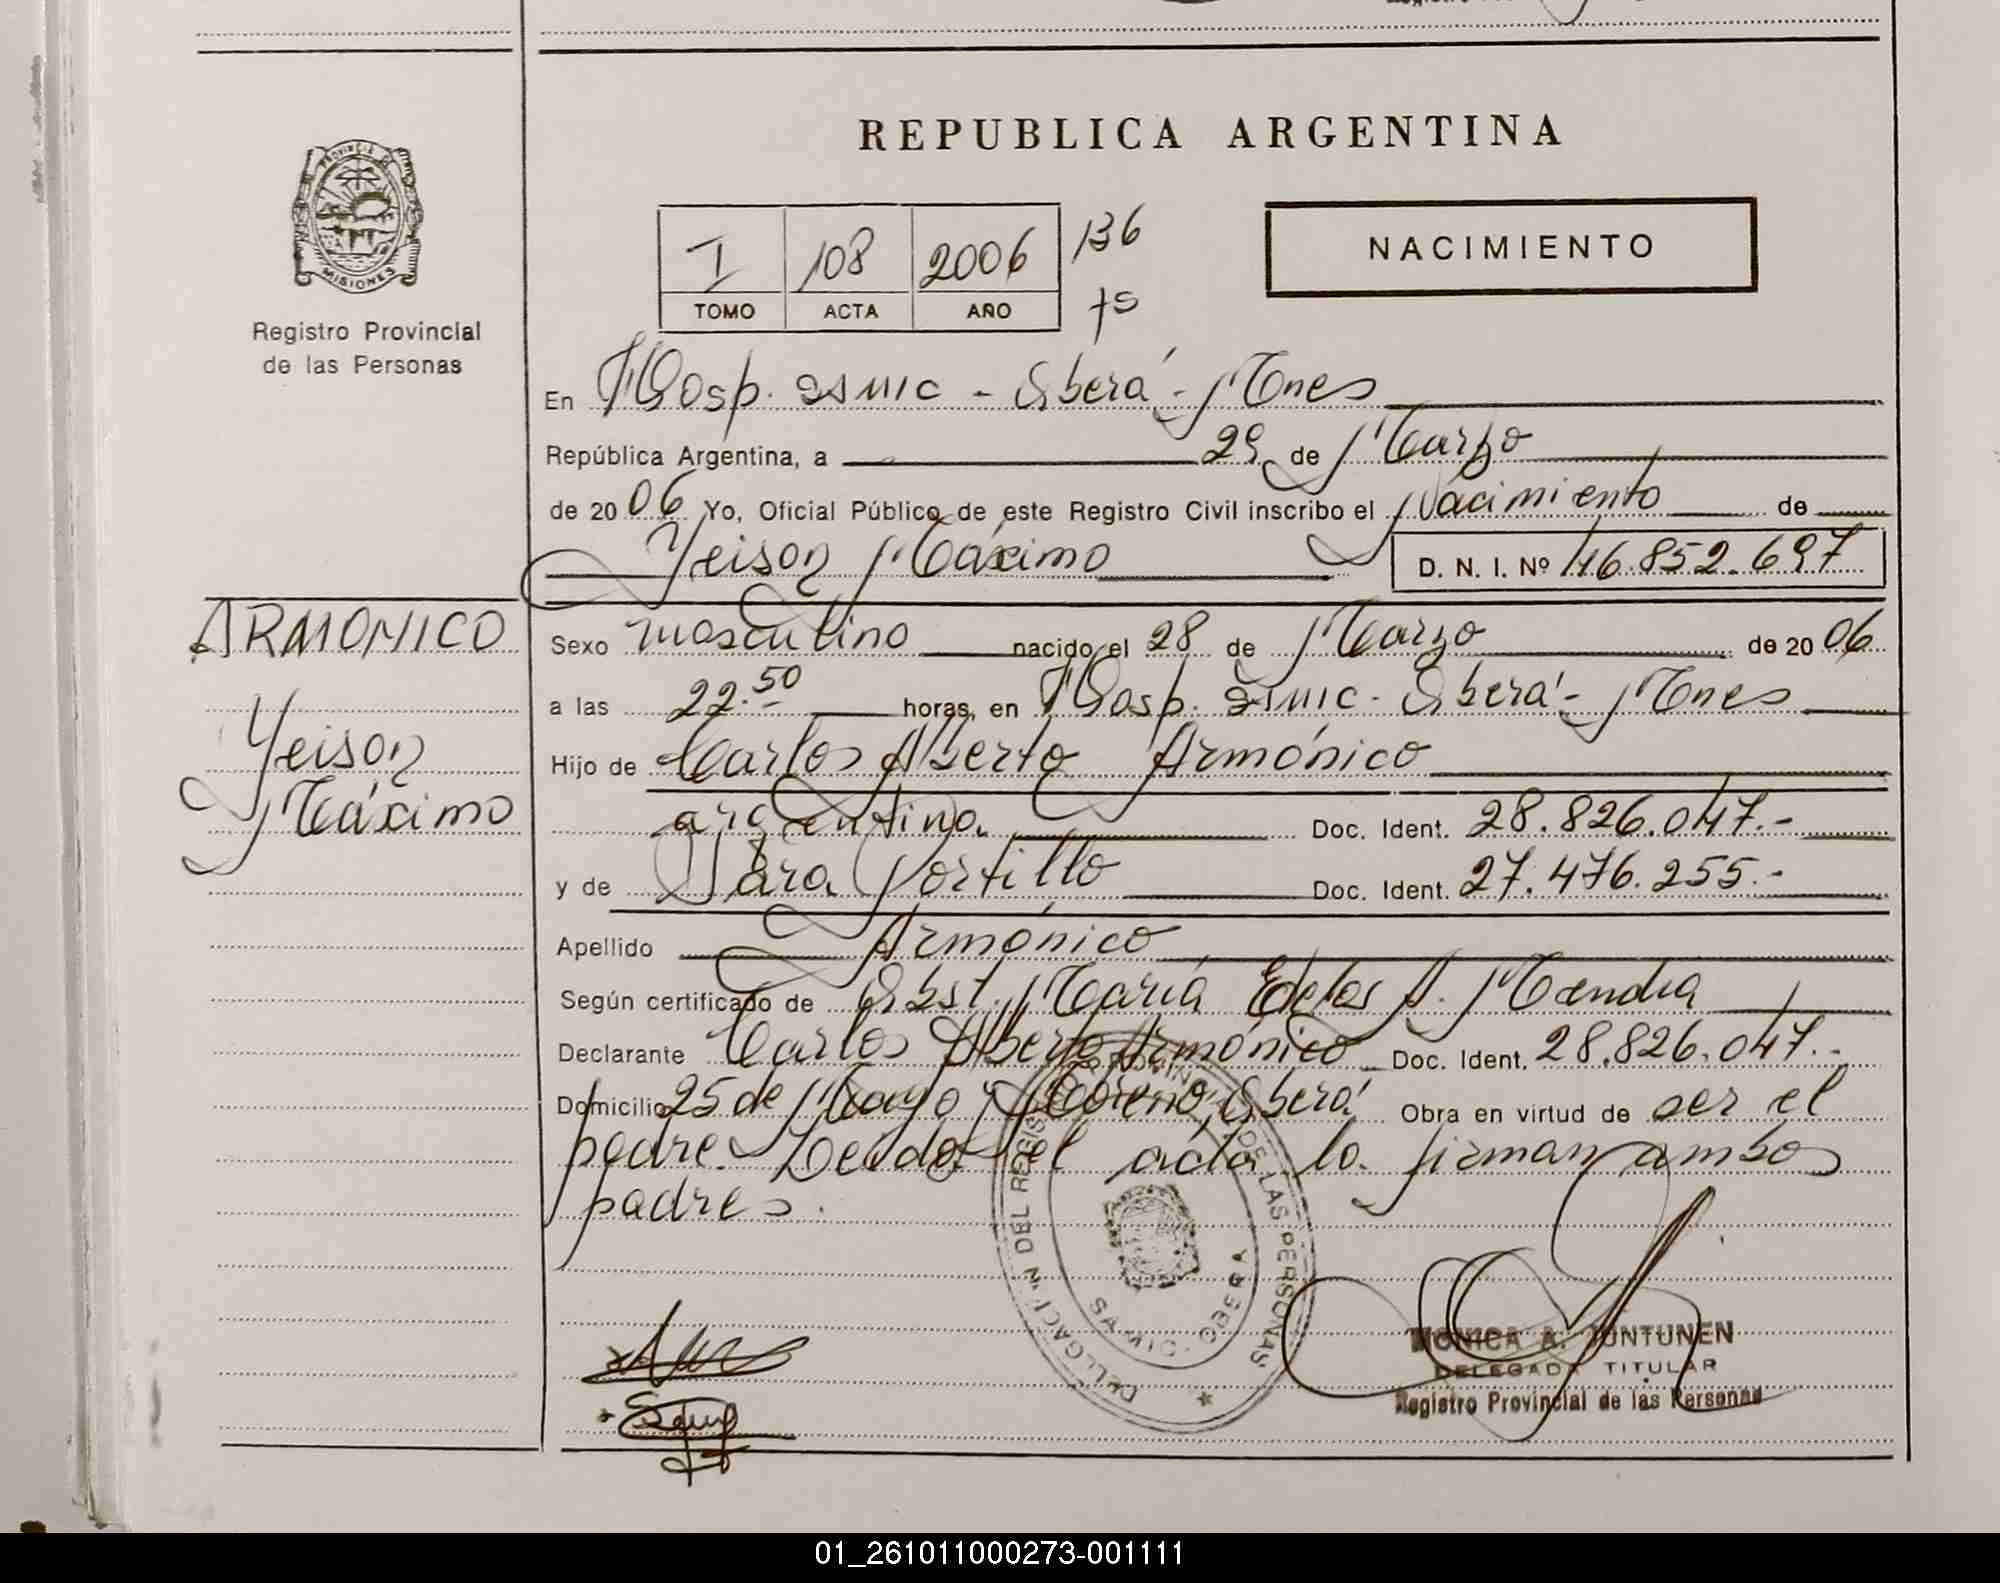 PROVINCIA DE
MISIONES
Registro Provincial
de las Personas
REPUBLICA ARGENTINA
I 108 2006 136
TOMO ACTA AÑO
NACIMIENTO
En Hosp. SAMIC - Oberá - Mnes
República Argentina, a 29 de Marzo
de 2006 Yo, Oficial Público de este Registro Civil inscribo el Nacimiento de
Yeison Máximo D. N. I. Nº 46.852.697
ARMONICO
Yeison
Máximo
Sexo masculino nacido el 28 de Marzo de 2006
a las 22.50 horas, en Hosp. SAMIC - Oberá - Mnes
Hijo de Carlos Alberto Armónico
argentino. Doc. Ident. 28.826.047.-
y de Sara Portillo Doc. Ident. 27.476.255.-
Apellido Armónico
Según certificado de Obst. María de los A.
Declarante Carlos Alberto Armónico Doc. Ident. 28.826.047.-
Domicilio 25 de Mayo y Moreno, Oberá Obra en virtud de ser el
padre. Leída el acta la firman ambos
padres.
DELEGACION DEL REGISTRO PROVINCIAL DE LAS PERSONAS
OBERA
MONICA A. JUNTUNEN
DELEGADA TITULAR
Registro Provincial de las Personas
01_261011000273-001111